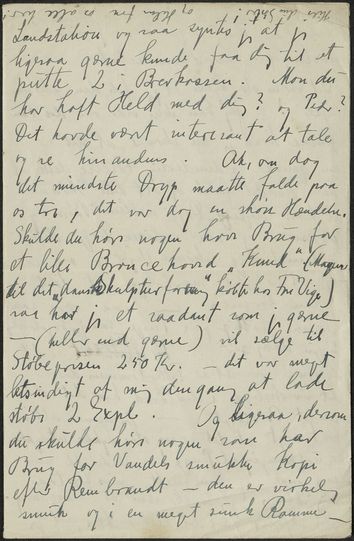 Hils din Søster! og Hilsen fra os alle her.
Landstation og saa synes jeg at jeg
ligesaa gerne kunde faa dig til et
putte 2 i Brevkassen. Mon du
har haft Held med dig? og Peter?
Det havde været interesant at tale
og se hinanden. Ak, om dog
det mindste Dryp maatte falde paa
os to, det var dog en skøn Hændelse.
Skulde du høre nogen have Brug for
et lille Broncehoved "Knud" (Magen
til det, "dansk Skulpturforening" købte hos Fru Vige)
saa har jeg et saadant som jeg gerne
– (heller end gerne) vil sælge til
Støbeprisen 250 Kr. – det var meget
letsindigt af mig dengang at lade
støbe 2 Expl. Og ligesaa, dersom
du skulde høre nogen som har
Brug for Vandels smukke Kopi
efter Rembrandt – den er virkelig
smuk og i en meget smuk Ramme –